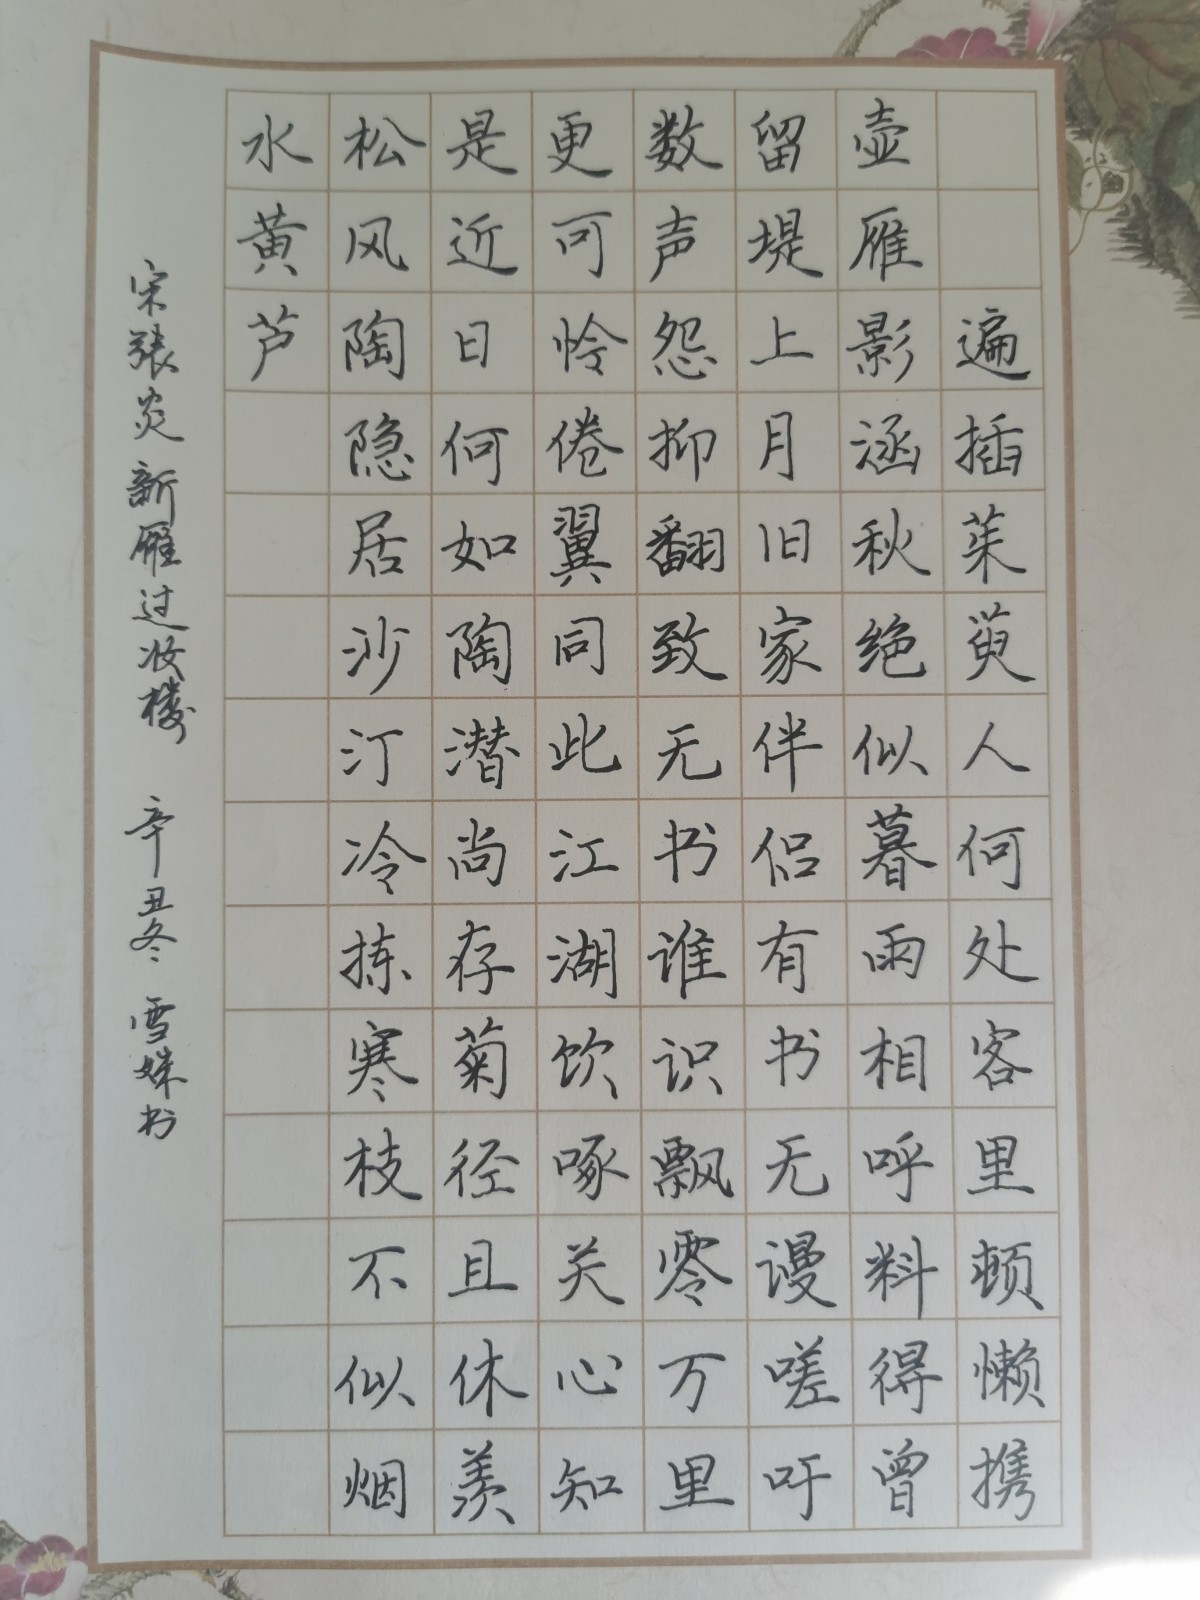 遍插茱萸人何处客里顿懒携
壶雁影涵秋绝似暮雨相呼料得曾
留堤上月旧家伴侣有书无谩嗟吁
数声怨抑翻致无书谁识飘零万里
更可怜倦翼同此江湖饮啄关心知
是近日何如陶潜尚存菊径且休羡
松风陶隐居沙汀冷拣寒枝不似烟
水黄芦
宋張炎新雁过妆楼 辛丑冬 雪姝书